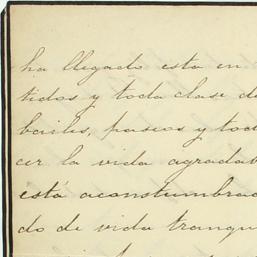 ha llegado esta en
tidos y toda clase de
bailes, paseos y tod
cer la vida agradab
está aconstumbrad
do de vida tranqu